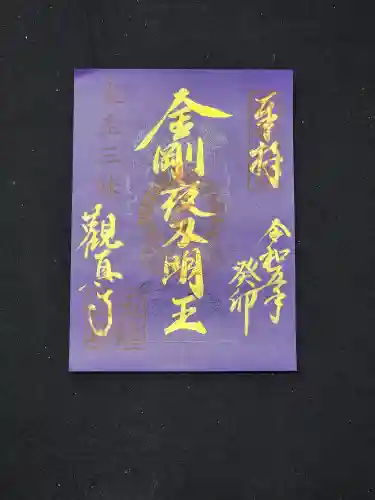 奉拝
令和五年
癸卯
金剛夜叉明王
観真寺